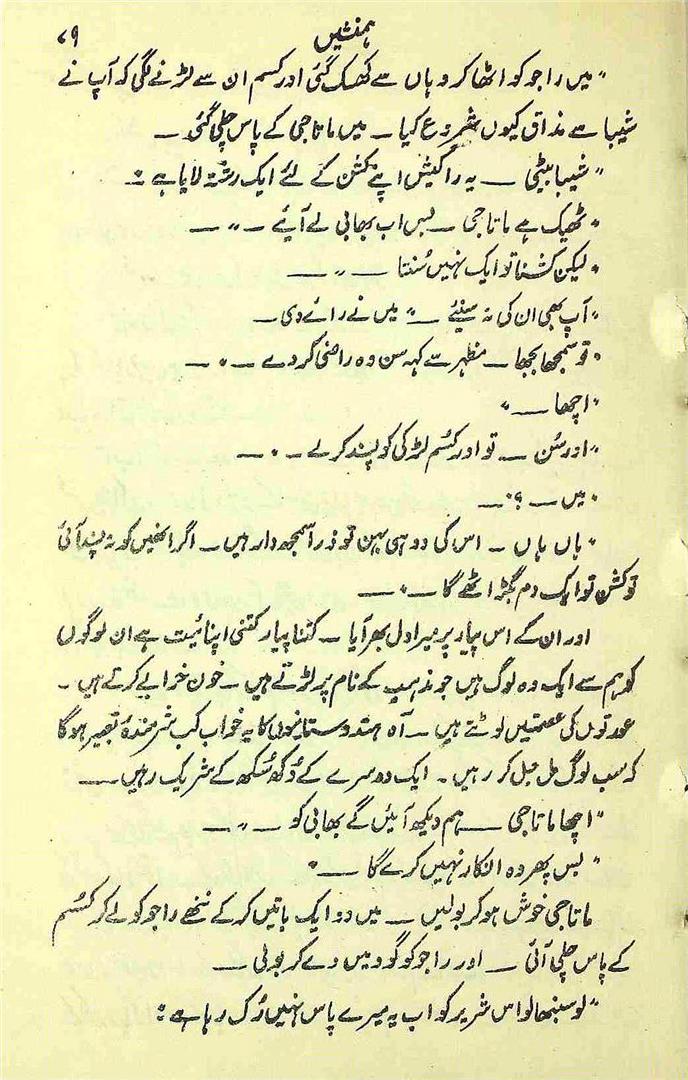 ہمنشیں
۷۹
"میں راجو کو اٹھا کر وہاں سے کھسک گئی اور کسم ان سے لڑنے لگی کہ آپ نے
شیبا سے مذاق کیوں شروع کیا ــ میں ماتا جی کے پاس چلی گئی ــ
"شیبا بیٹی ــ یہ راکیش اپنے کشن کے لئے ایک رشتہ لایا ہے :
"ٹھیک ہے ماتا جی ــ بس اب بھابی لے آیئے ــ" ــ
"لیکن کشنا تو ایک نہیں سُنتا ــ" ــ
"آپ بھی ان کی نہ سنیئے ــ" میں نے رائے دی ــ
"تو سمجھا بجھا ــ مظہر سے کہہ سن وہ راضی کر دے ــ" ــ
"اچھا ــ"
"اور سُن ــ تو اور کسُم لڑکی کو پسند کر لے ــ" ــ
"میں ــ ؟" ــ
"ہاں ہاں ــ اس کی دو ہی بہن تو ذرا سمجھ دار ہیں ــ اگر انھیں کو نہ پسند آئی
تو کشن تو ایک دم بگڑ اٹھے گا ــ" ــ
اور ان کے اس پیار پر میرا دل بھر آیا ــ کتنا پیار کتنی اپنائیت ہے ان لوگوں
کو ہم سے ایک وہ لوگ ہیں جو مذہب کے نام پر لڑتے ہیں ــ خون خرابے کرتے ہیں ــ
عورتوں کی عصمتیں لوٹتے ہیں ــ آہ ہندوستانیوں کا یہ خواب کب شرمندۂ تعبیر ہوگا
کہ سب لوگ مل جل کر رہیں ۔ ایک دوسرے کے دُکھ سُکھ کے شریک رہیں ــ
"اچھا ماتا جی ــ ہم دیکھ آئیں گے بھابی کو ــ" ــ
"بس پھر وہ انکار نہیں کرے گا ــ"
ماتا جی خوش ہو کر بولیں ــ میں دو ایک باتیں کر کے ننھے راجو کو لے کر کسُم
کے پاس چلی آئی ــ اور راجو کو گود میں دے کر بولی ــ
"لو سنبھالو اس شریر کو اب یہ میرے پاس نہیں رُک رہا ہے :